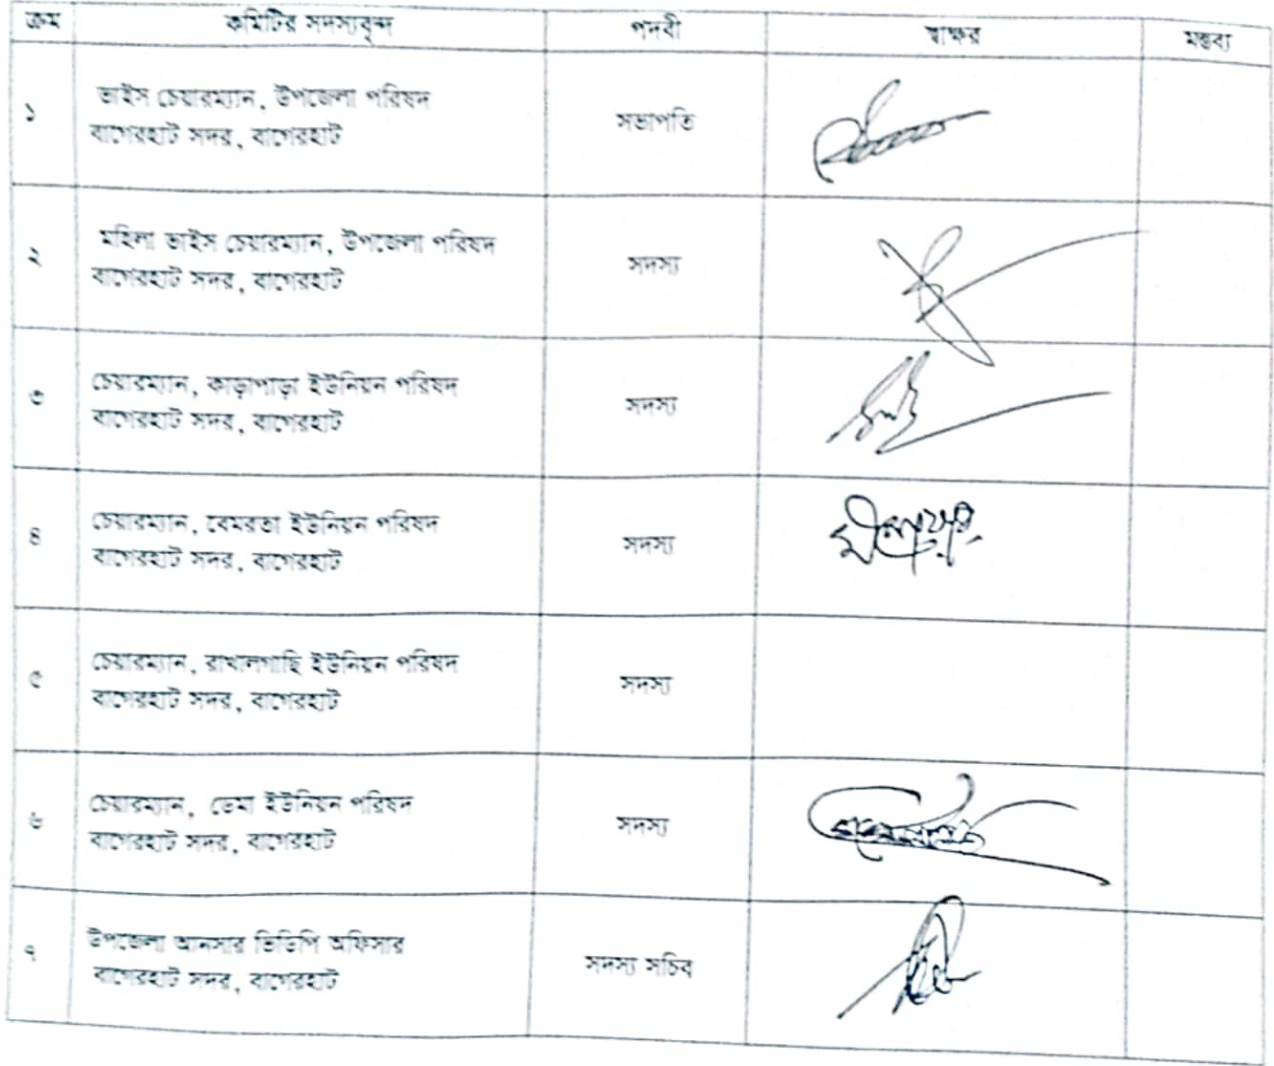 ক্রম কমিটির সদস্যবৃন্দ পদবী স্বাক্ষর মন্তব্য
১ ভাইস চেয়ারম্যান, উপজেলা পরিষদ
বাগেরহাট সদর, বাগেরহাট সভাপতি
২ মহিলা ভাইস চেয়ারম্যান, উপজেলা পরিষদ
বাগেরহাট সদর, বাগেরহাট সদস্য
৩ চেয়ারম্যান, কাড়াপাড়া ইউনিয়ন পরিষদ
বাগেরহাট সদর, বাগেরহাট সদস্য
৪ চেয়ারম্যান, বেমরতা ইউনিয়ন পরিষদ
বাগেরহাট সদর, বাগেরহাট সদস্য
৫ চেয়ারম্যান, রাখালগাছি ইউনিয়ন পরিষদ
বাগেরহাট সদর, বাগেরহাট সদস্য
৬ চেয়ারম্যান, ডেমা ইউনিয়ন পরিষদ
বাগেরহাট সদর, বাগেরহাট সদস্য
৭ উপজেলা আনসার ভিডিপি অফিসার
বাগেরহাট সদর, বাগেরহাট সদস্য সচিব